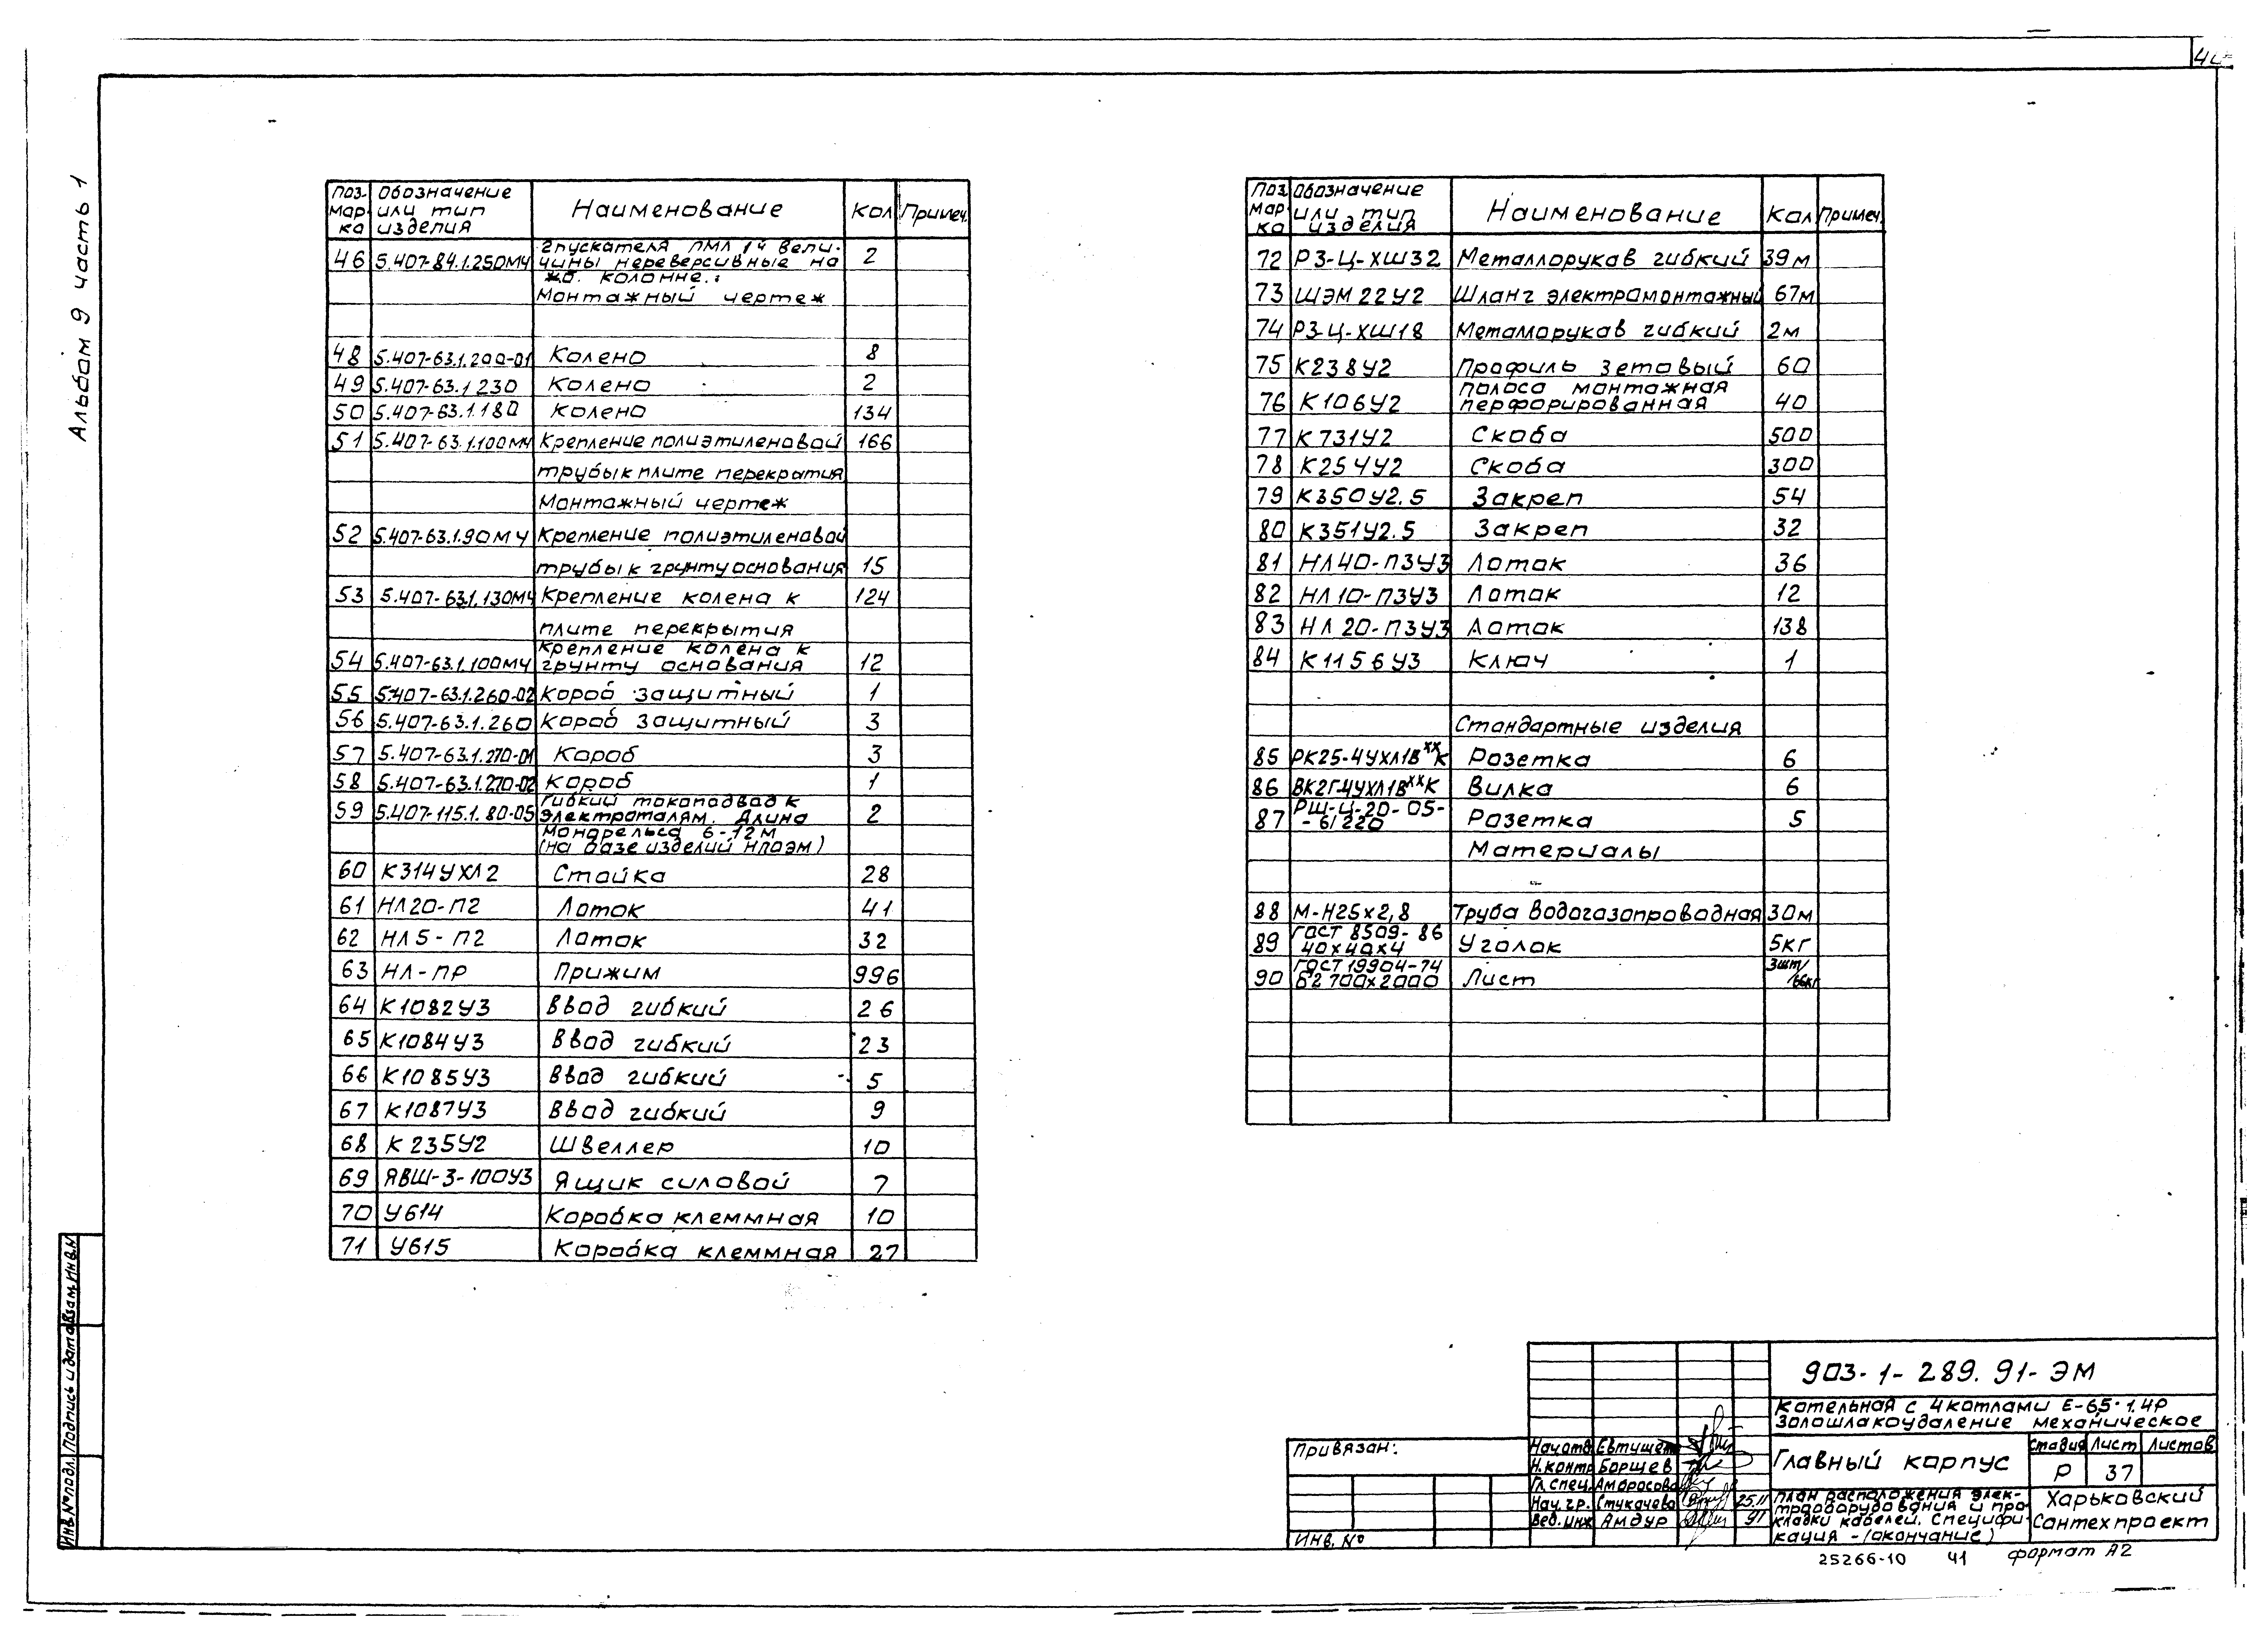 Альбом 9 часть 1
Поз. Мар ка | Обозначение или тип изделия | Наименование | Кол | Примеч.
46 | 5.407-84.1.250МЧ | 2 пускателя ПМЛ 1÷4 вели- | 2
чины нереверсивные на
жб. колонне.:
Монтажный чертеж
48 | 5.407-63.1.200-01 | Колено | 8
49 | 5.407-63.1.230 | Колено | 2
50 | 5.407-63.1.180 | Колено | 134
51 | 5.407-63.1.100МЧ | Крепление полиэтиленовой | 166
трубы к плите перекратия
Монтажный чертеж
52 | 5.407-63.1.90МЧ | Крепление полиэтиленовой
трубы к грунту основания | 15
53 | 5.407-63.1.130МЧ | Крепление колена к | 124
плите перекрытия
54 | 5.407-63.1.100МЧ | Крепление колена к
грунту основания | 12
55 | 5.407-63.1.260-02 | Короб защитный | 1
56 | 5.407-63.1.260 | Короб защитный | 3
57 | 5.407-63.1.270-01 | Короб | 3
58 | 5.407-63.1.270-02 | Короб | 1
59 | 5.407-115.1.80-05 | Гибкий токоподвод к
электроталям. Длина | 2
монорельса 6-12м
(на базе изделий НПОЭМ)
60 | К314УХЛ2 | Стойка | 28
61 | НЛ20-П2 | Лоток | 41
62 | НЛ5-П2 | Лоток | 32
63 | НЛ-ПР | Прижим | 996
64 | К1082У3 | Ввод гибкий | 26
65 | К1084У3 | Ввод гибкий | 23
66 | К1085У3 | Ввод гибкий | 5
67 | К1087У3 | Ввод гибкий | 9
68 | К235У2 | Швеллер | 10
69 | ЯВШ-3-100У3 | Ящик силовой | 7
70 | У614 | Коробка клеммная | 10
71 | У615 | Коробка клеммная | 27
Поз Мар- ка | Обозначение или тип изделия | Наименование | Кол | Примеч.
72 | РЗ-Ц-ХШ32 | Металлорукав гибкий | 39м
73 | ШЭМ 22У2 | Шланг электромонтажный | 67м
74 | РЗ-Ц-ХШ18 | Металлорукав гибкий | 2м
75 | К238У2 | Профиль зетовый | 60
76 | К106У2 | Полоса монтажная
перфорированная | 40
77 | К731У2 | Скоба | 500
78 | К254У2 | Скоба | 300
79 | К350У2.5 | Закреп | 54
80 | К351У2.5 | Закреп | 32
81 | НЛ40-П3У3 | Лоток | 36
82 | НЛ10-П3У3 | Лоток | 12
83 | НЛ20-П3У3 | Лоток | 138
84 | К1156У3 | Ключ | 1
Стандартные изделия
85 | РК25-4УХЛ1ВххК | Розетка | 6
86 | ВК2Г-4УХЛ1ВххК | Вилка | 6
87 | РШ-Ц-20-05-
-6/220 | Розетка | 5
Материалы
88 | М-Н25х2,8 | Труба водогазопроводная | 30м
89 | ГОСТ 8509-86
40х40х4 | Уголок | 5кг
90 | ГОСТ 19904-74
б2 700х2000 | Лист | 3шт/
/66кг
Инв.№подл. Подпись и дата Взам.Инв.N
Привязан:
Инв. №
903-1-289.91-ЭМ
Котельная с 4 котлами Е-6,5-1.4Р
Золошлакоудаление механическое
Нач.отд
Н.контр Борщев
Гл.спец. Амбросова
Нач.гр. Стукачева 25.11
Вед.инж Амдур 91
Главный корпус
Стадия Лист Листов
Р 37
План расположения элек-
трооборудования и про
кладки кабелей. Специфи-
кация - (окончание)
Харьковский
Сантехпроект
25266-10 41 формат А2